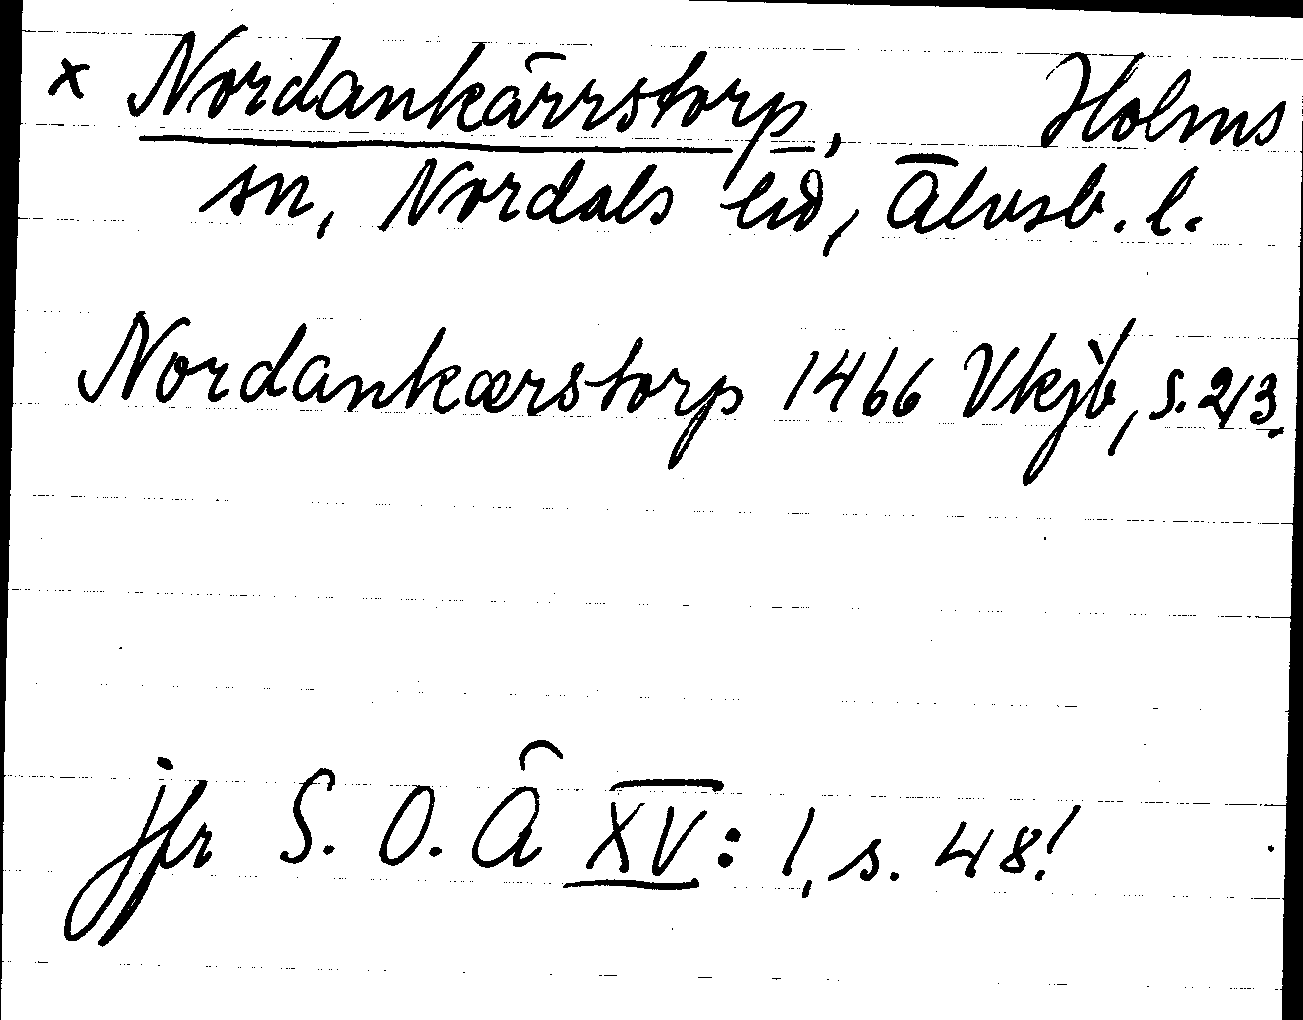 x Nordankärrstorp, Holms
sn, Nordals hd, Älvsb. l.
Nordankærstorp 1466 Vkjb, s. 213.
jfr S. O. Ä XV: 1, s. 48!